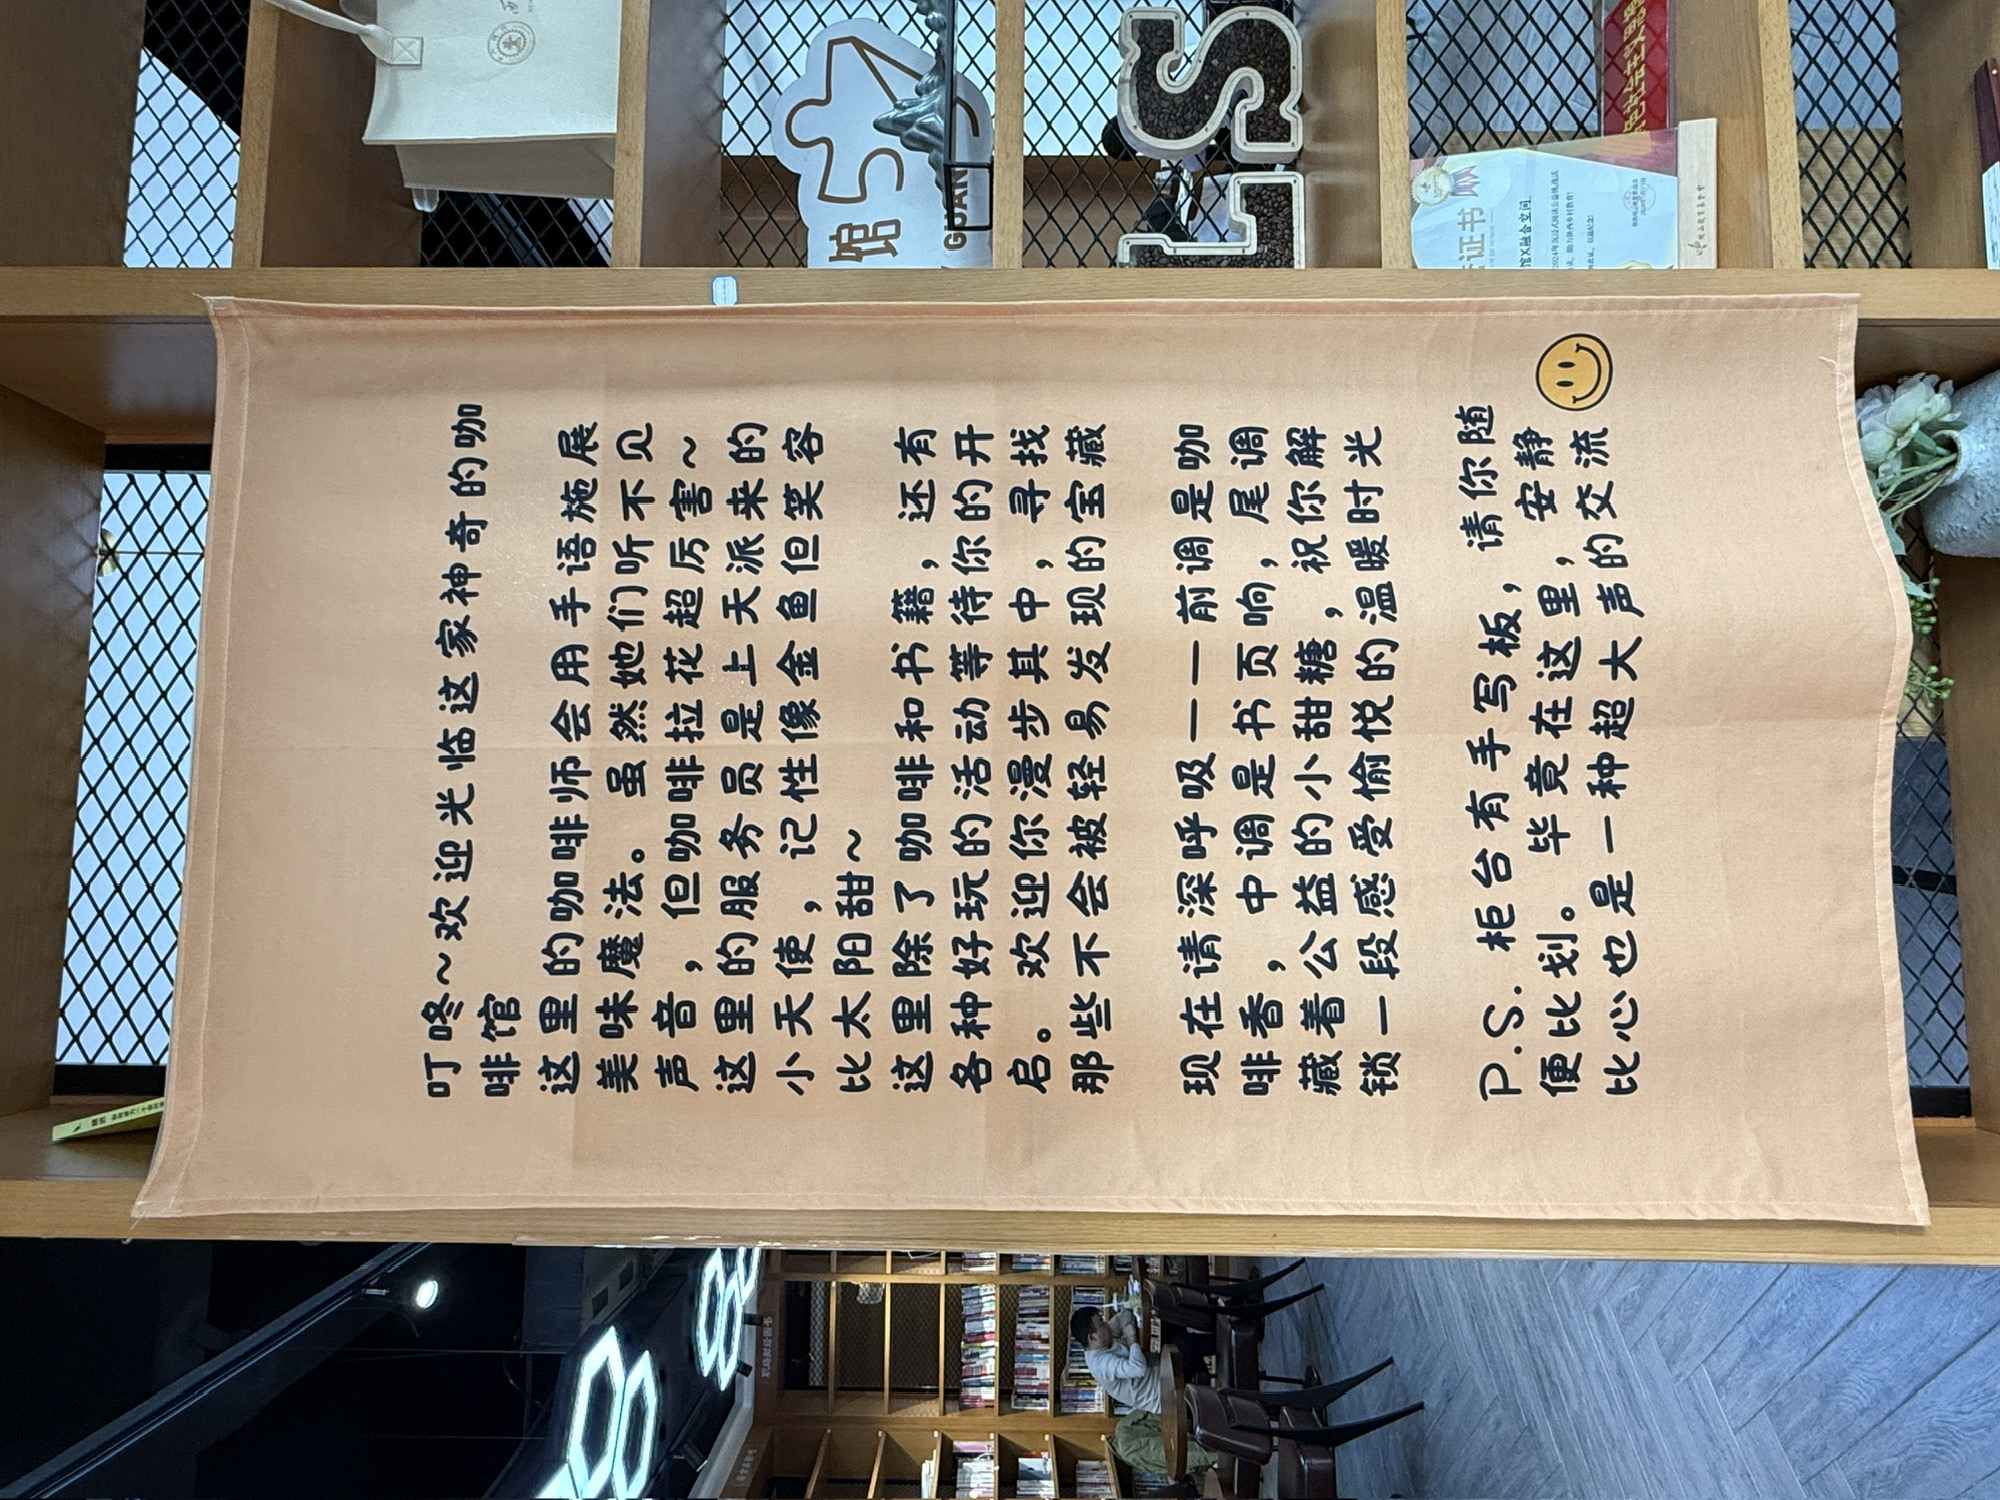 叮咚~欢迎光临这家神奇的咖
啡馆
这里的咖啡师会用手语施展
美味魔法。虽然她们听不见
声音，但咖啡拉花超厉害~
这里的服务员是上天派来的
小天使，记性像金鱼但笑容
比太阳甜~
这里除了咖啡和书籍，还有
各种好玩的活动等待你的开
启。欢迎你漫步其中，寻找
那些不会被轻易发现的宝藏
现在请深呼吸——前调是咖
啡香，中调是书页响，尾调
藏着公益的小甜糖，祝你解
锁一段感受愉悦的温暖时光
P.S.柜台有手写板，请你随
便比划。毕竟在这里，安静
比心也是一种超大声的交流
馆
GUAN
LS
证书
馆X融合空间